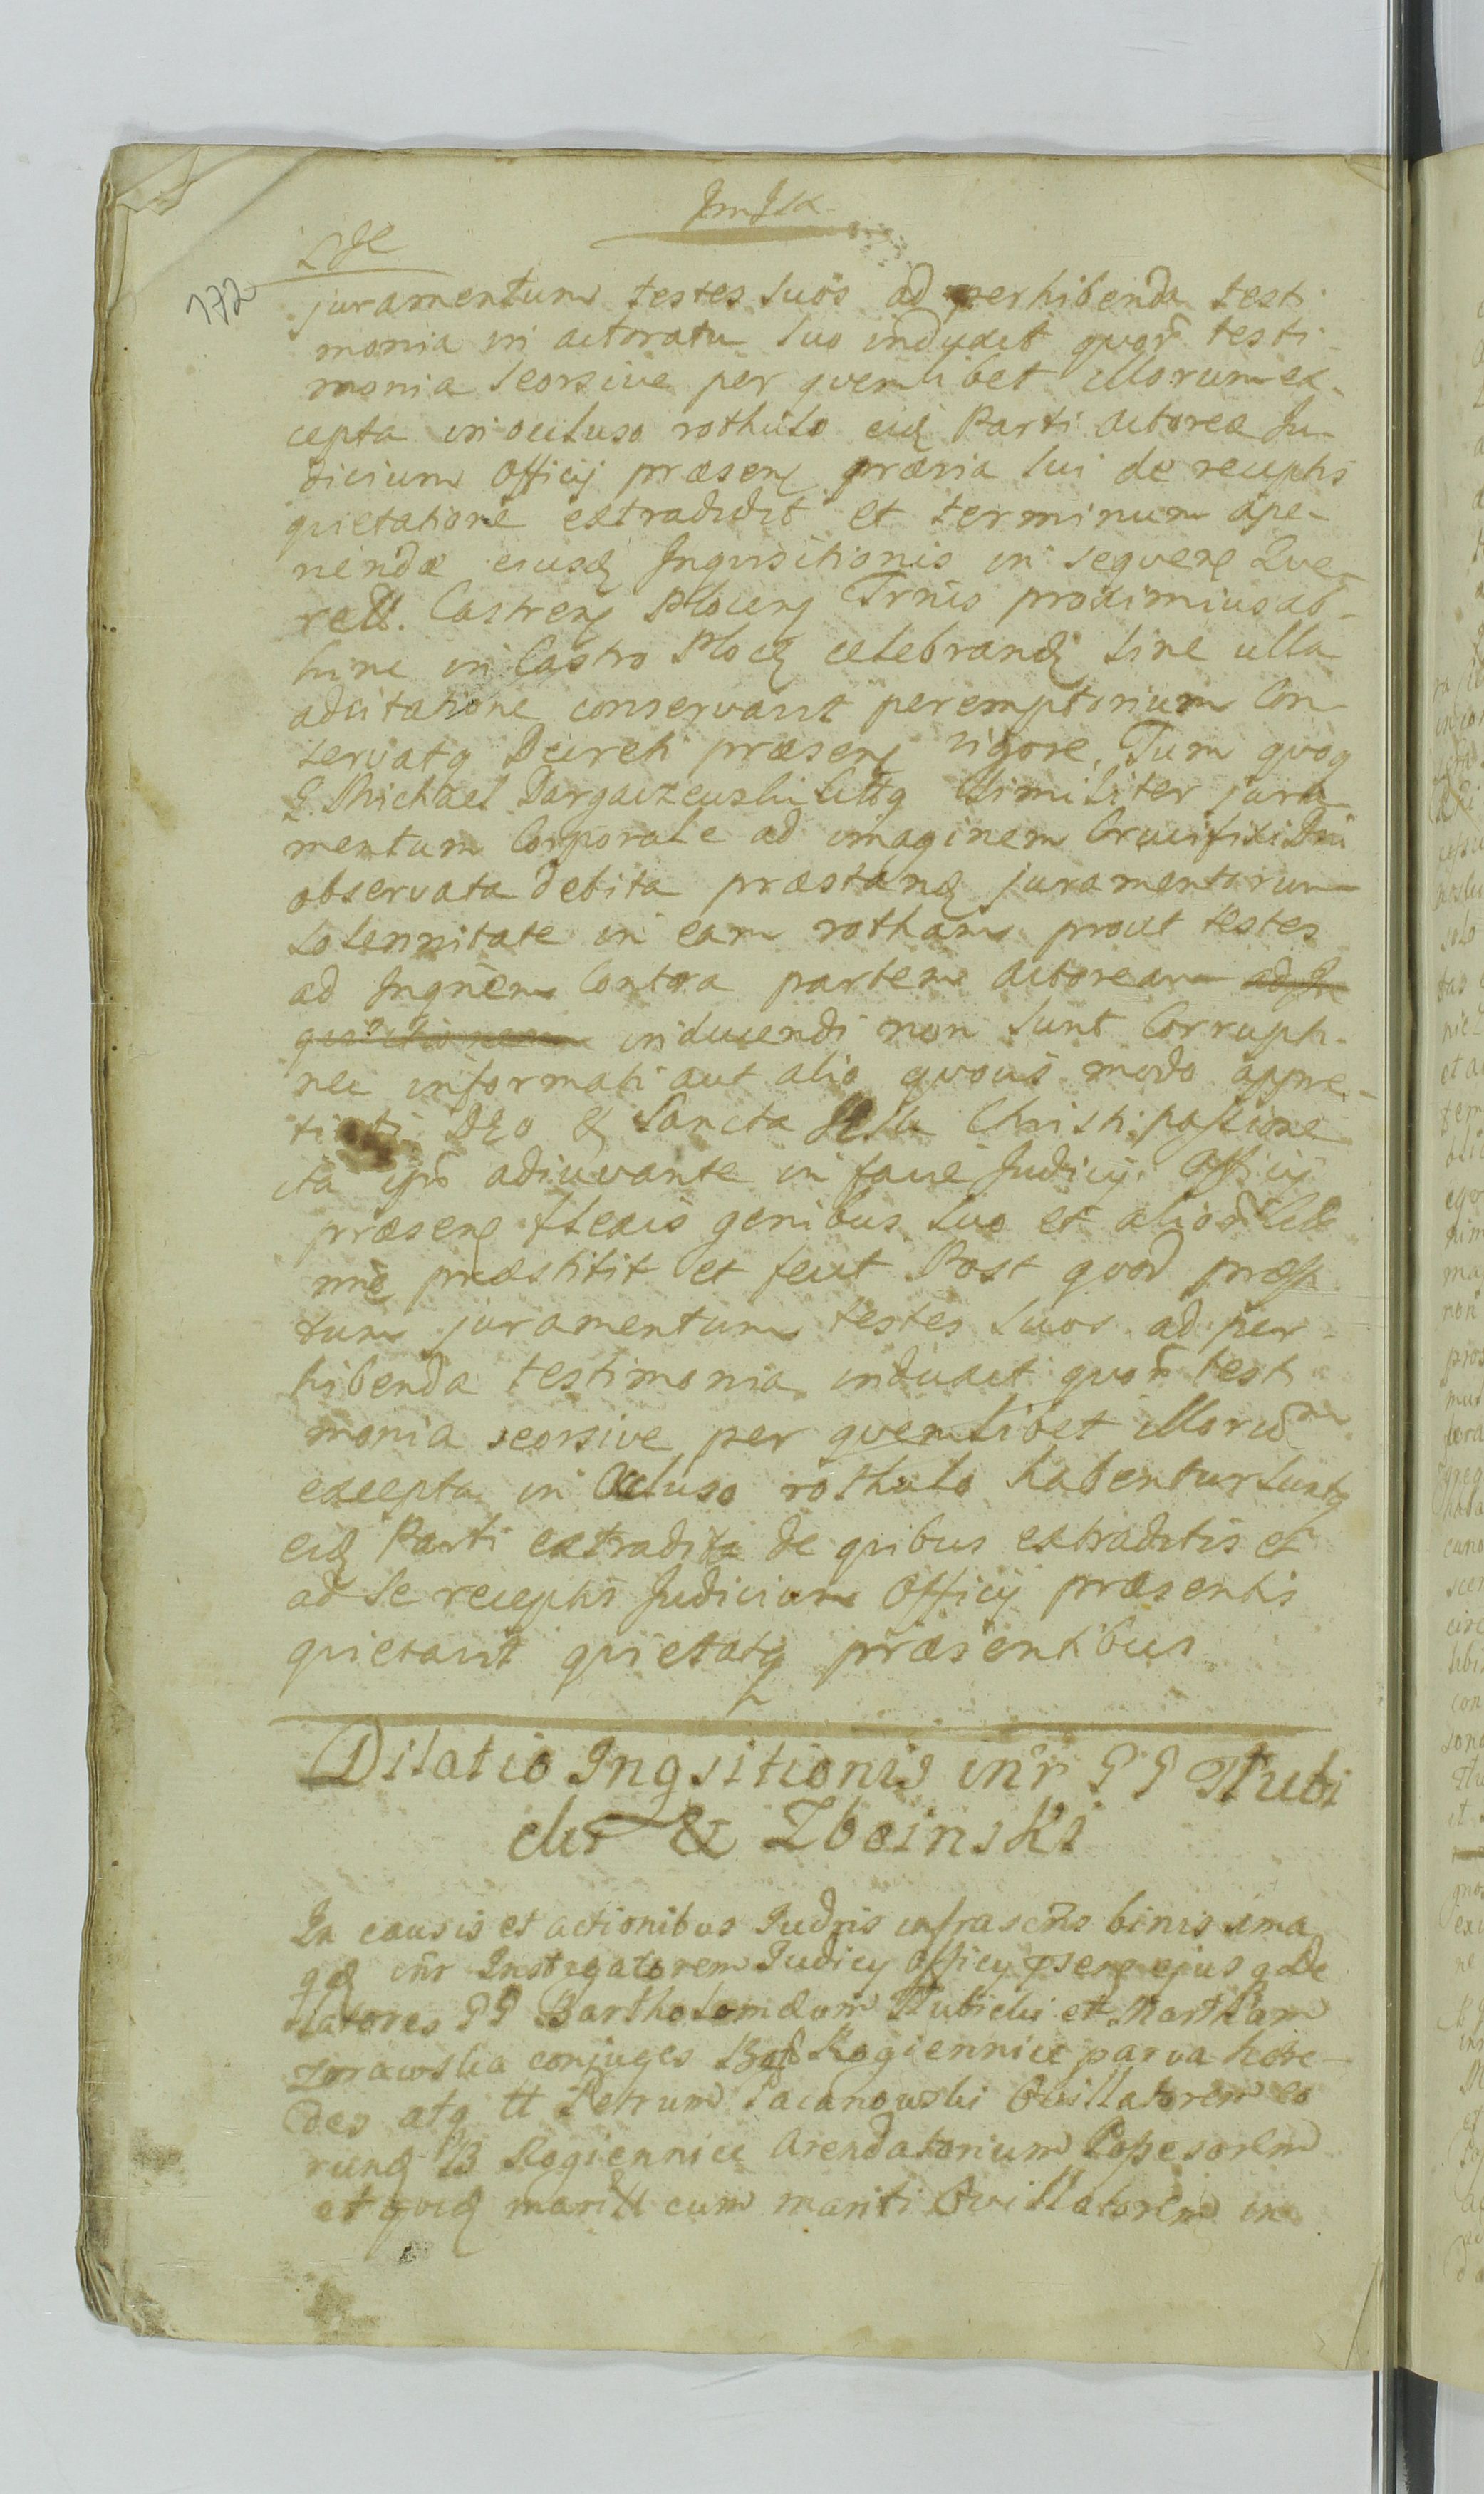 172
juramentum testes suos ad perhibenda testi-
monia in actoratu suo induxit quor̃ testi-
monia seorsive per quemlibet illorum ex-
cepta in occluso rothulo eidq Parti actoreæ Ju-
dicium Officij præsenq prævia sui de receptis
quietatione extradidit et terminum ape-
riendæ eiusq Inquisitionis in sequenq Que-
rell. Castrenq Plocenq Trn̄is proximius ab-
hinc in Castro Plocq celebrandq sine ulla
adcitatione conservavit peremptorium Con-
servatq Decreti præsenq vigore, Tum quoq
G. Michael Dargaczewski Cittq similiter jura-
mentum Corporale ad imaginem Crucifixi Dni
observata debita præstandq juramentorum
solennitate in eam rotham prout testes
ad Inqnem Contra partem actoream ad In
quisitionem inducendi non sunt Corrupti
nec informati aut alio quovis modo appre-
tiati DEO & Sancta JESu Christi passione
ita ipsũ adiuvante in facie Judicij Officij
præsenq flexis genibus suo et alior̃
præstitit et fecit Post quod præsti
tum juramentum testes suos ad per-
hibenda testimonia induxit quor̃ testi
monia seorsive per quemlibet illorum
excepta in Occluso rothulo habentur suntq
eidq Parti extradita de quibus extraditis et
ad se receptis Judicium Officij præsentis
quietavit quietatq præsentibus
Dilatio Inqsitionis inr̃ GG Kubi
cki & Zboinski
In causis et actionibus Judris infrascr̃is binis una
qdq inr̃ Instigatorem Judicij Officij psenq ejus q De
latores GG Bartholomæum Kubicki et Martham
Zorawska conjuges Bonor̃ Rogiennice parva hære-
des atq tt Petrum Pacanowski Ovillatorem eo
rundq B Rogiennice Arendatorium Possesorem
et qoidq maritt cum mariti Ovillatorem in